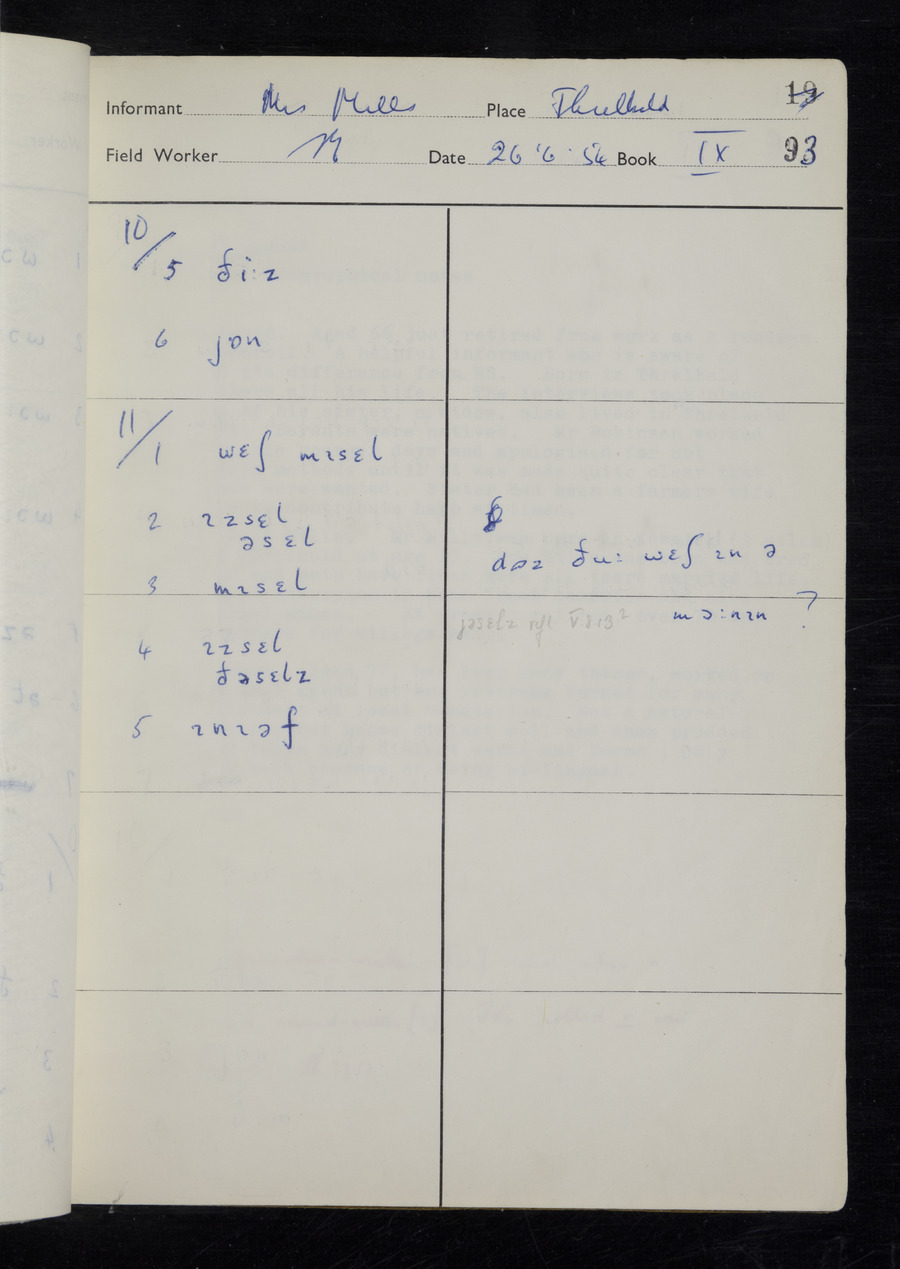 Informant Mrs Mills Place Threlkeld 19
Field Worker Date 26.6.54 Book IX 93
10/5 ði:z
6 jɒn
11/1 wɛʃ mɪsɛl
2 ɪzsɛl
əsɛl
3 mɪsɛl
4 ɪzsɛl
ðəsɛlz
5 ɪnɪəf
dɒz ðu: wɛʃ ɪn ə
mə:nɪn ?
jəsɛlz